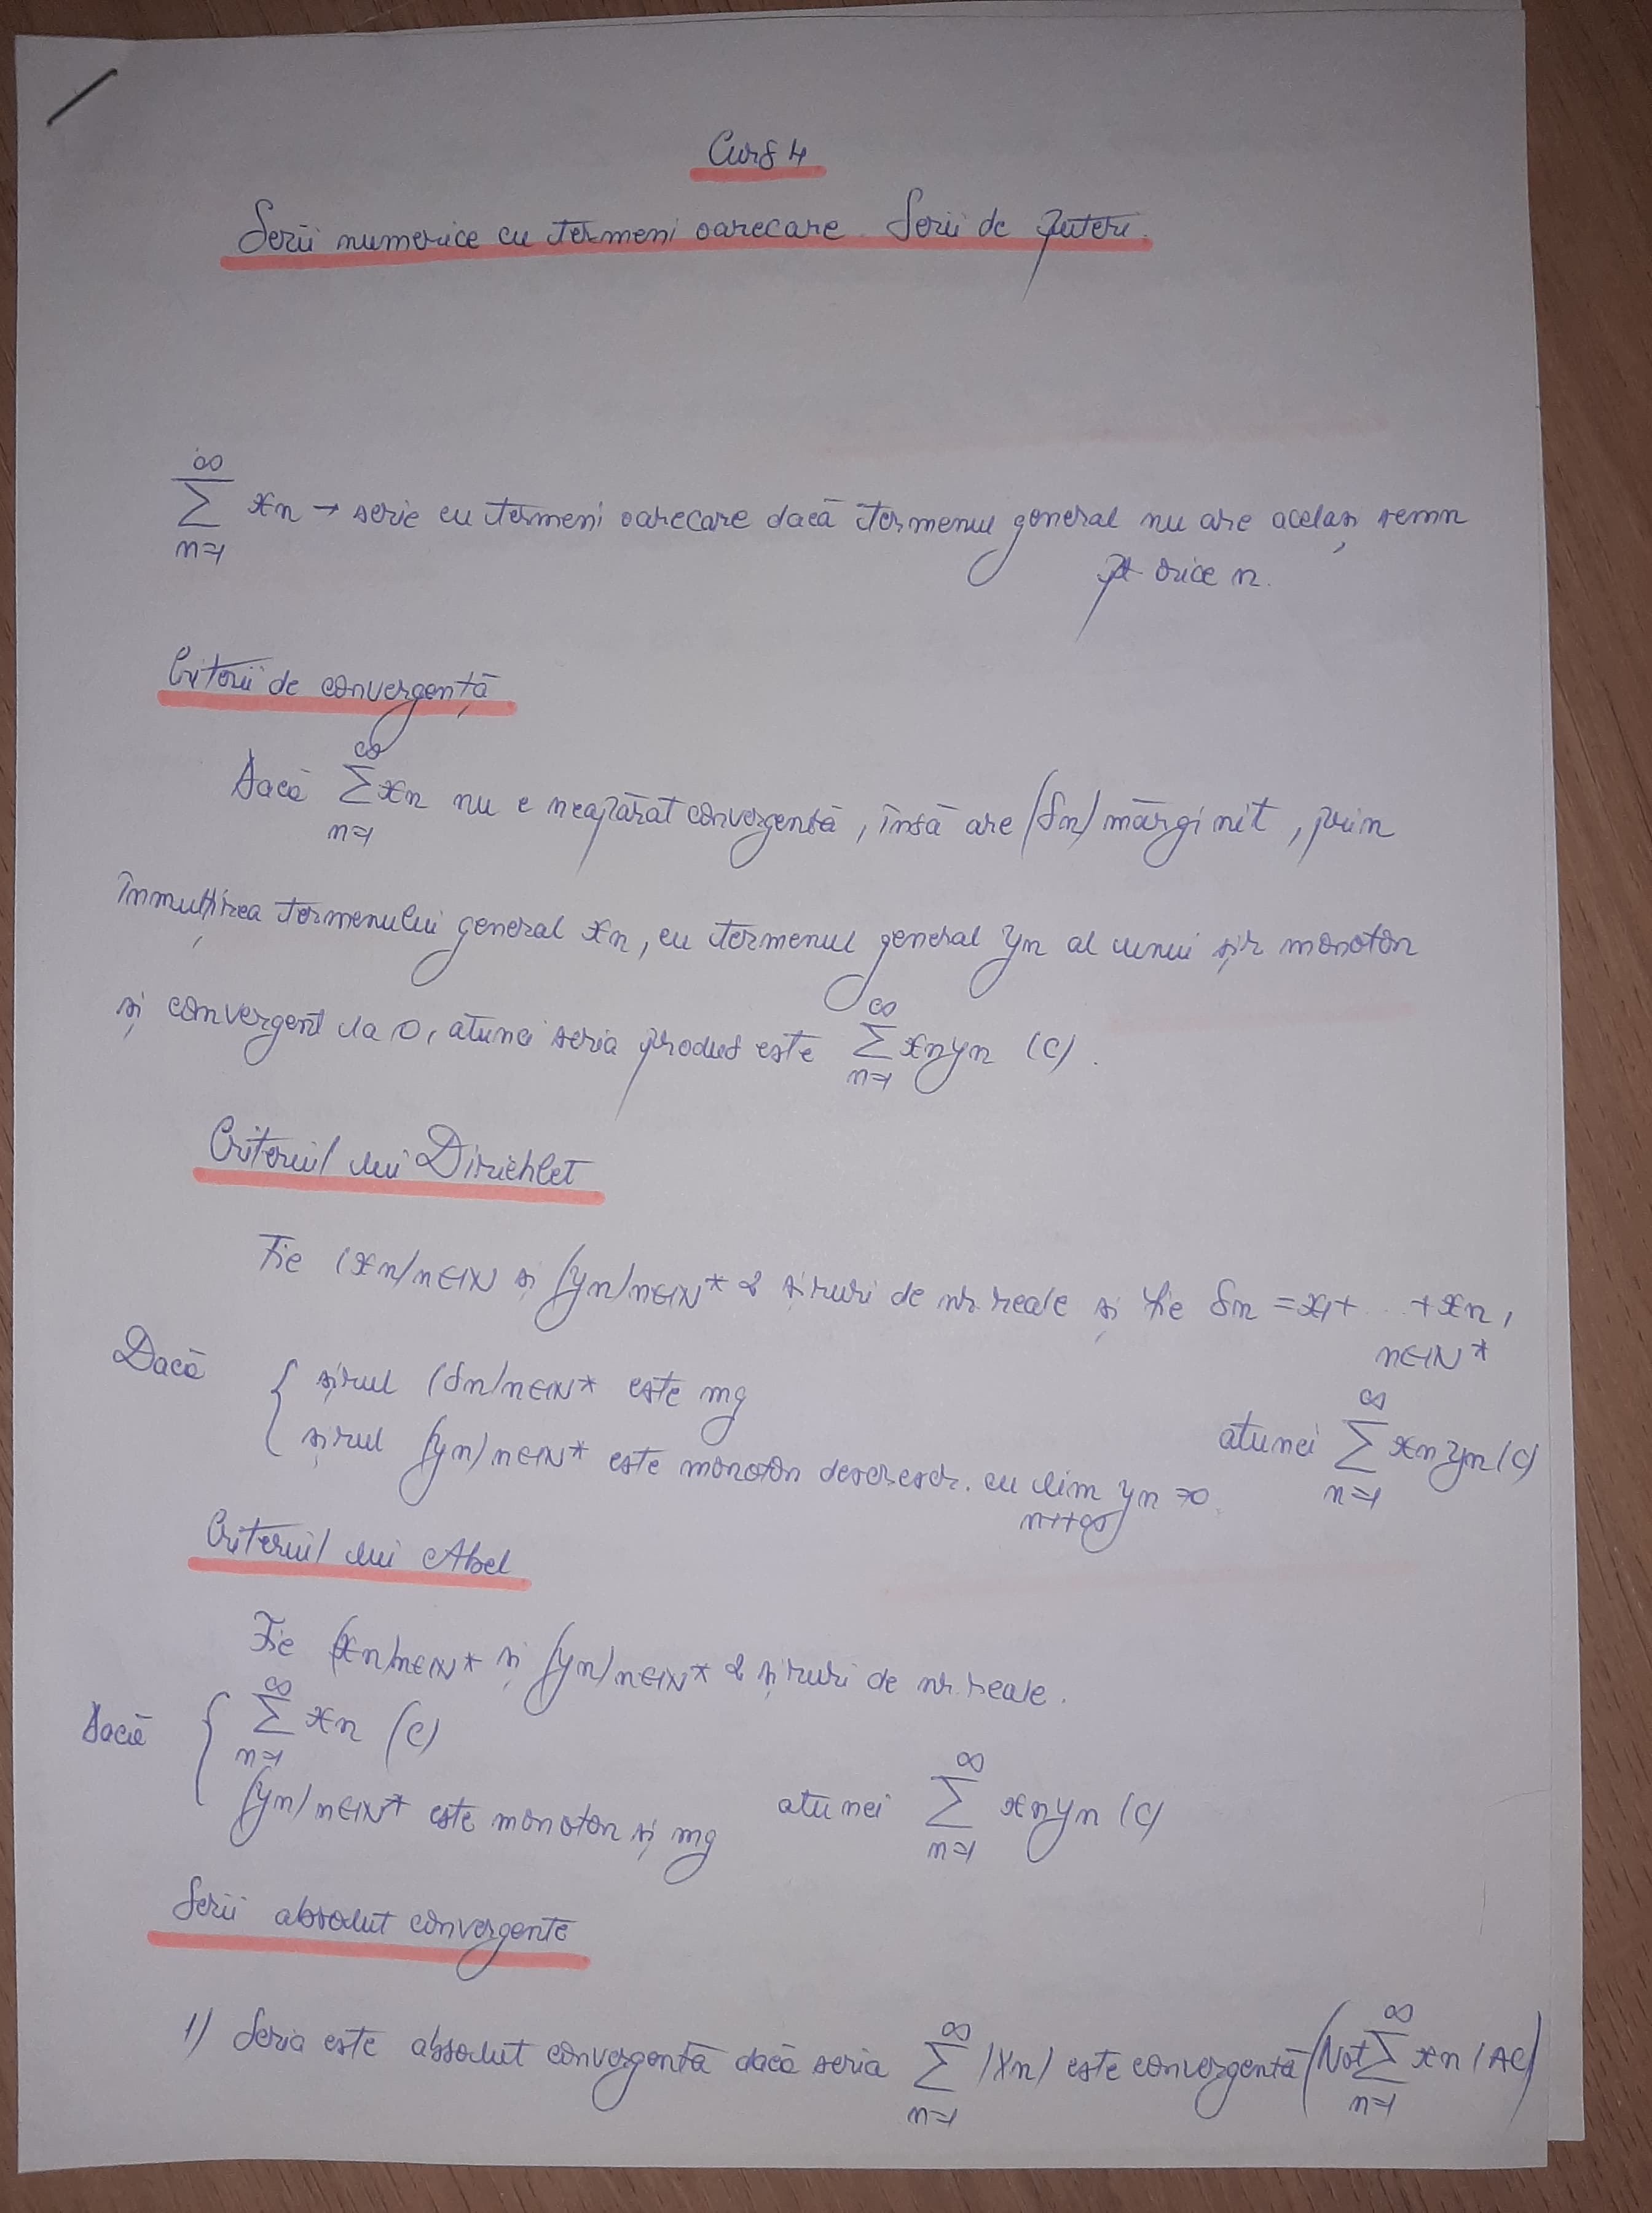 Curs 4
Serii numerice cu termeni oarecare. Serii de puteri.
∞
∑ xn → serie cu termeni oarecare dacă termenul general nu are același semn
n=1
pt orice n.
Criterii de convergență
Dacă ∑_{n=1}^{∞} xn nu e neapărat convergentă, însă are (Sn) mărginit, prin
înmulțirea termenului general xn, cu termenul general yn al unui șir monoton
și convergent la 0, atunci seria produs este ∑_{n=1}^{∞} xnyn (C).
Criteriul lui Dirichlet
Fie (xn)n∈IN și (yn)n∈IN* 2 șiruri de nr. reale și fie Sn = x1+ ... +xn,
n∈IN*
Dacă { șirul (Sn)n∈IN* este mg
șirul (yn)n∈IN* este monoton descresc. cu lim_{n→+∞} yn =0. atunci ∑_{n=1}^{∞} xn yn (C)
Criteriul lui Abel
Fie (xn)n∈IN* și (yn)n∈IN* 2 șiruri de nr. reale.
Dacă { ∑_{n=1}^{∞} xn (C)
(yn)n∈IN* este monoton și mg atunci ∑_{n=1}^{∞} xnyn (C)
Serii absolut convergente
1) Seria este absolut convergentă dacă seria ∑_{n=1}^{∞} |Xn| este convergentă (Not ∑_{n=1}^{∞} xn (AC)